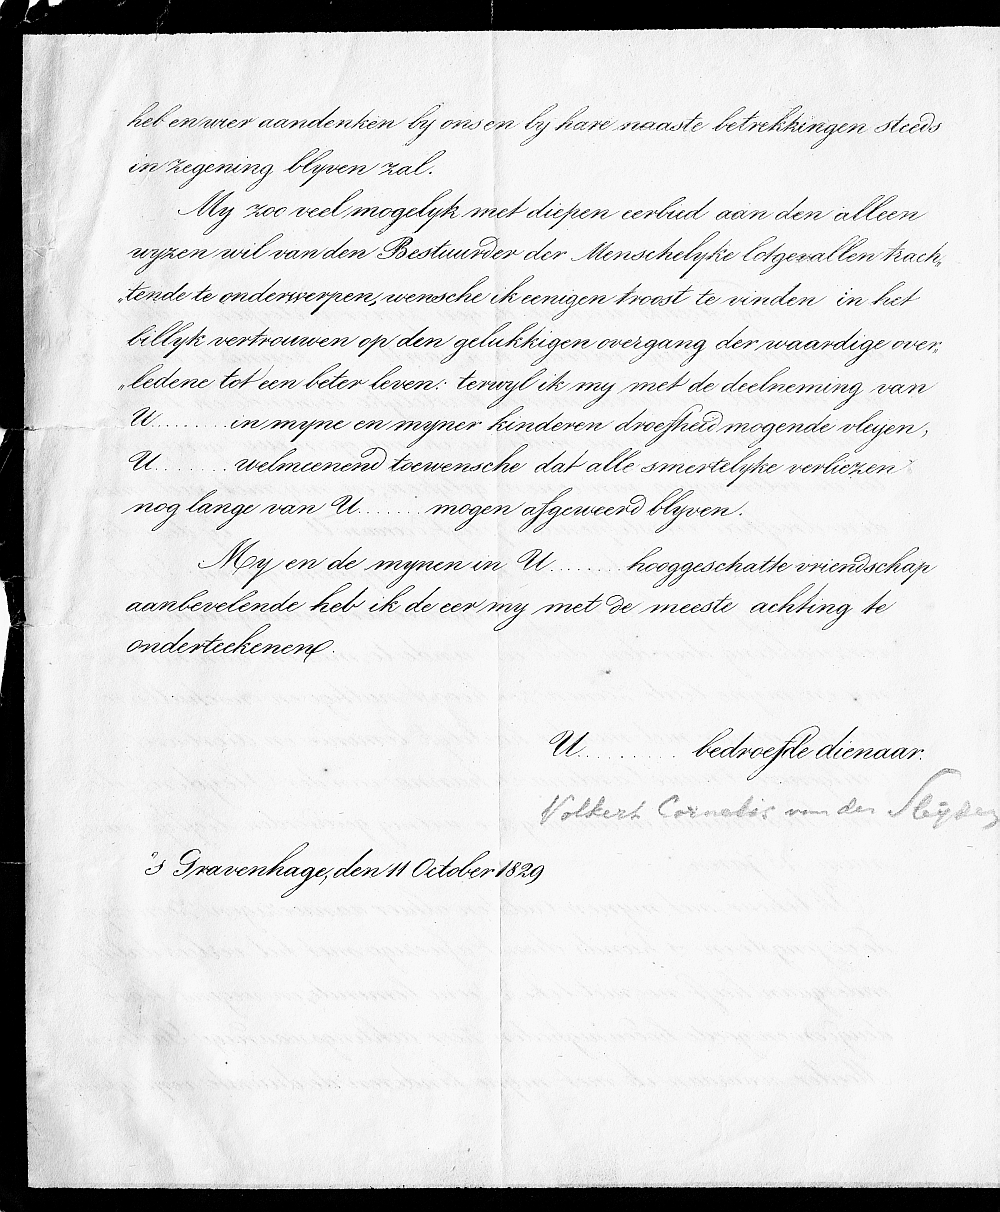 heb en wier aandenken by ons en by hare naaste betrekkingen steeds
in zegening blyven zal.
My zoo veel mogelyk met diepen eerbied aan den alleen
wyzen wil van den Bestuurder der Menschelyke lotgevallen trach„
„tende te onderwerpen, wensche ik eenigen troost te vinden in het
billyk vertrouwen op den gelukkigen overgang der waardige over„
„ledene tot een beter leven: terwyl ik my met de deelneming van
U........ in myne en myner kinderen droefheid mogende vleyen,
U........ welmeenend toewensche dat alle smertelyke verliezen
nog lange van U...... mogen afgeweerd blyven.
My en de mynen in U........ hooggeschatte vriendschap
aanbevelende heb ik de eer my met de meeste achting te
onderteekenen.
U.......... bedroefde dienaar.
Volkert Cornelis van der
's Gravenhage, den 11 October 1829